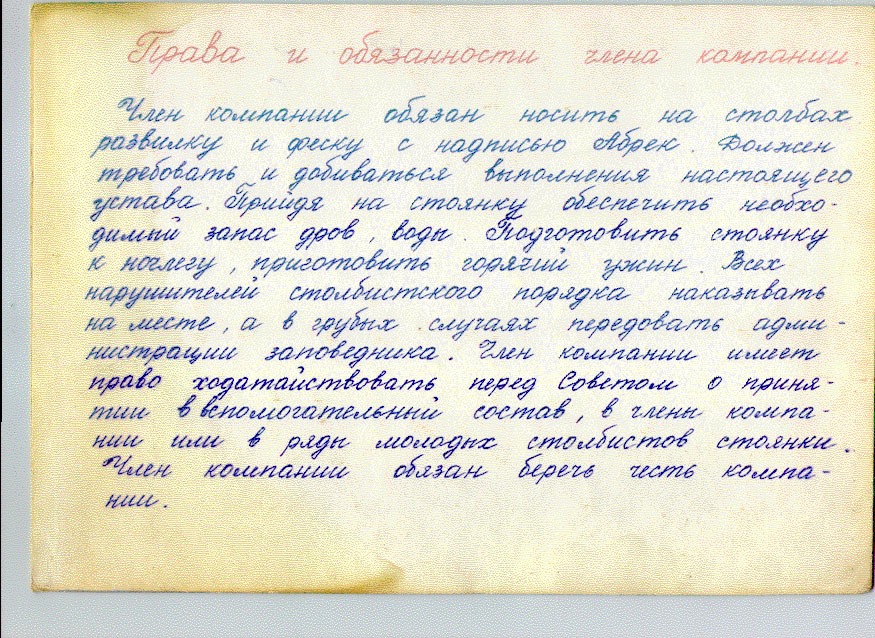 Права и обязанности члена компании.
Член компании обязан носить на столбах
развилку и феску с надписью Абрек. Должен
требовать и добиваться выполнения настоящего
устава. Прийдя на стоянку обеспечить необхо-
димый запас дров, воды. Подготовить стоянку
к ночлегу, приготовить горячий ужин. Всех
нарушителей столбистского порядка наказывать
на месте, а в грубых случаях передовать адми-
нистрации заповедника. Член компании имеет
право ходатайствовать перед Советом о приня-
тии в вспомогательный состав, в члены компа-
нии или в ряды молодых столбистов стоянки.
Член компании обязан беречь честь компа-
нии.